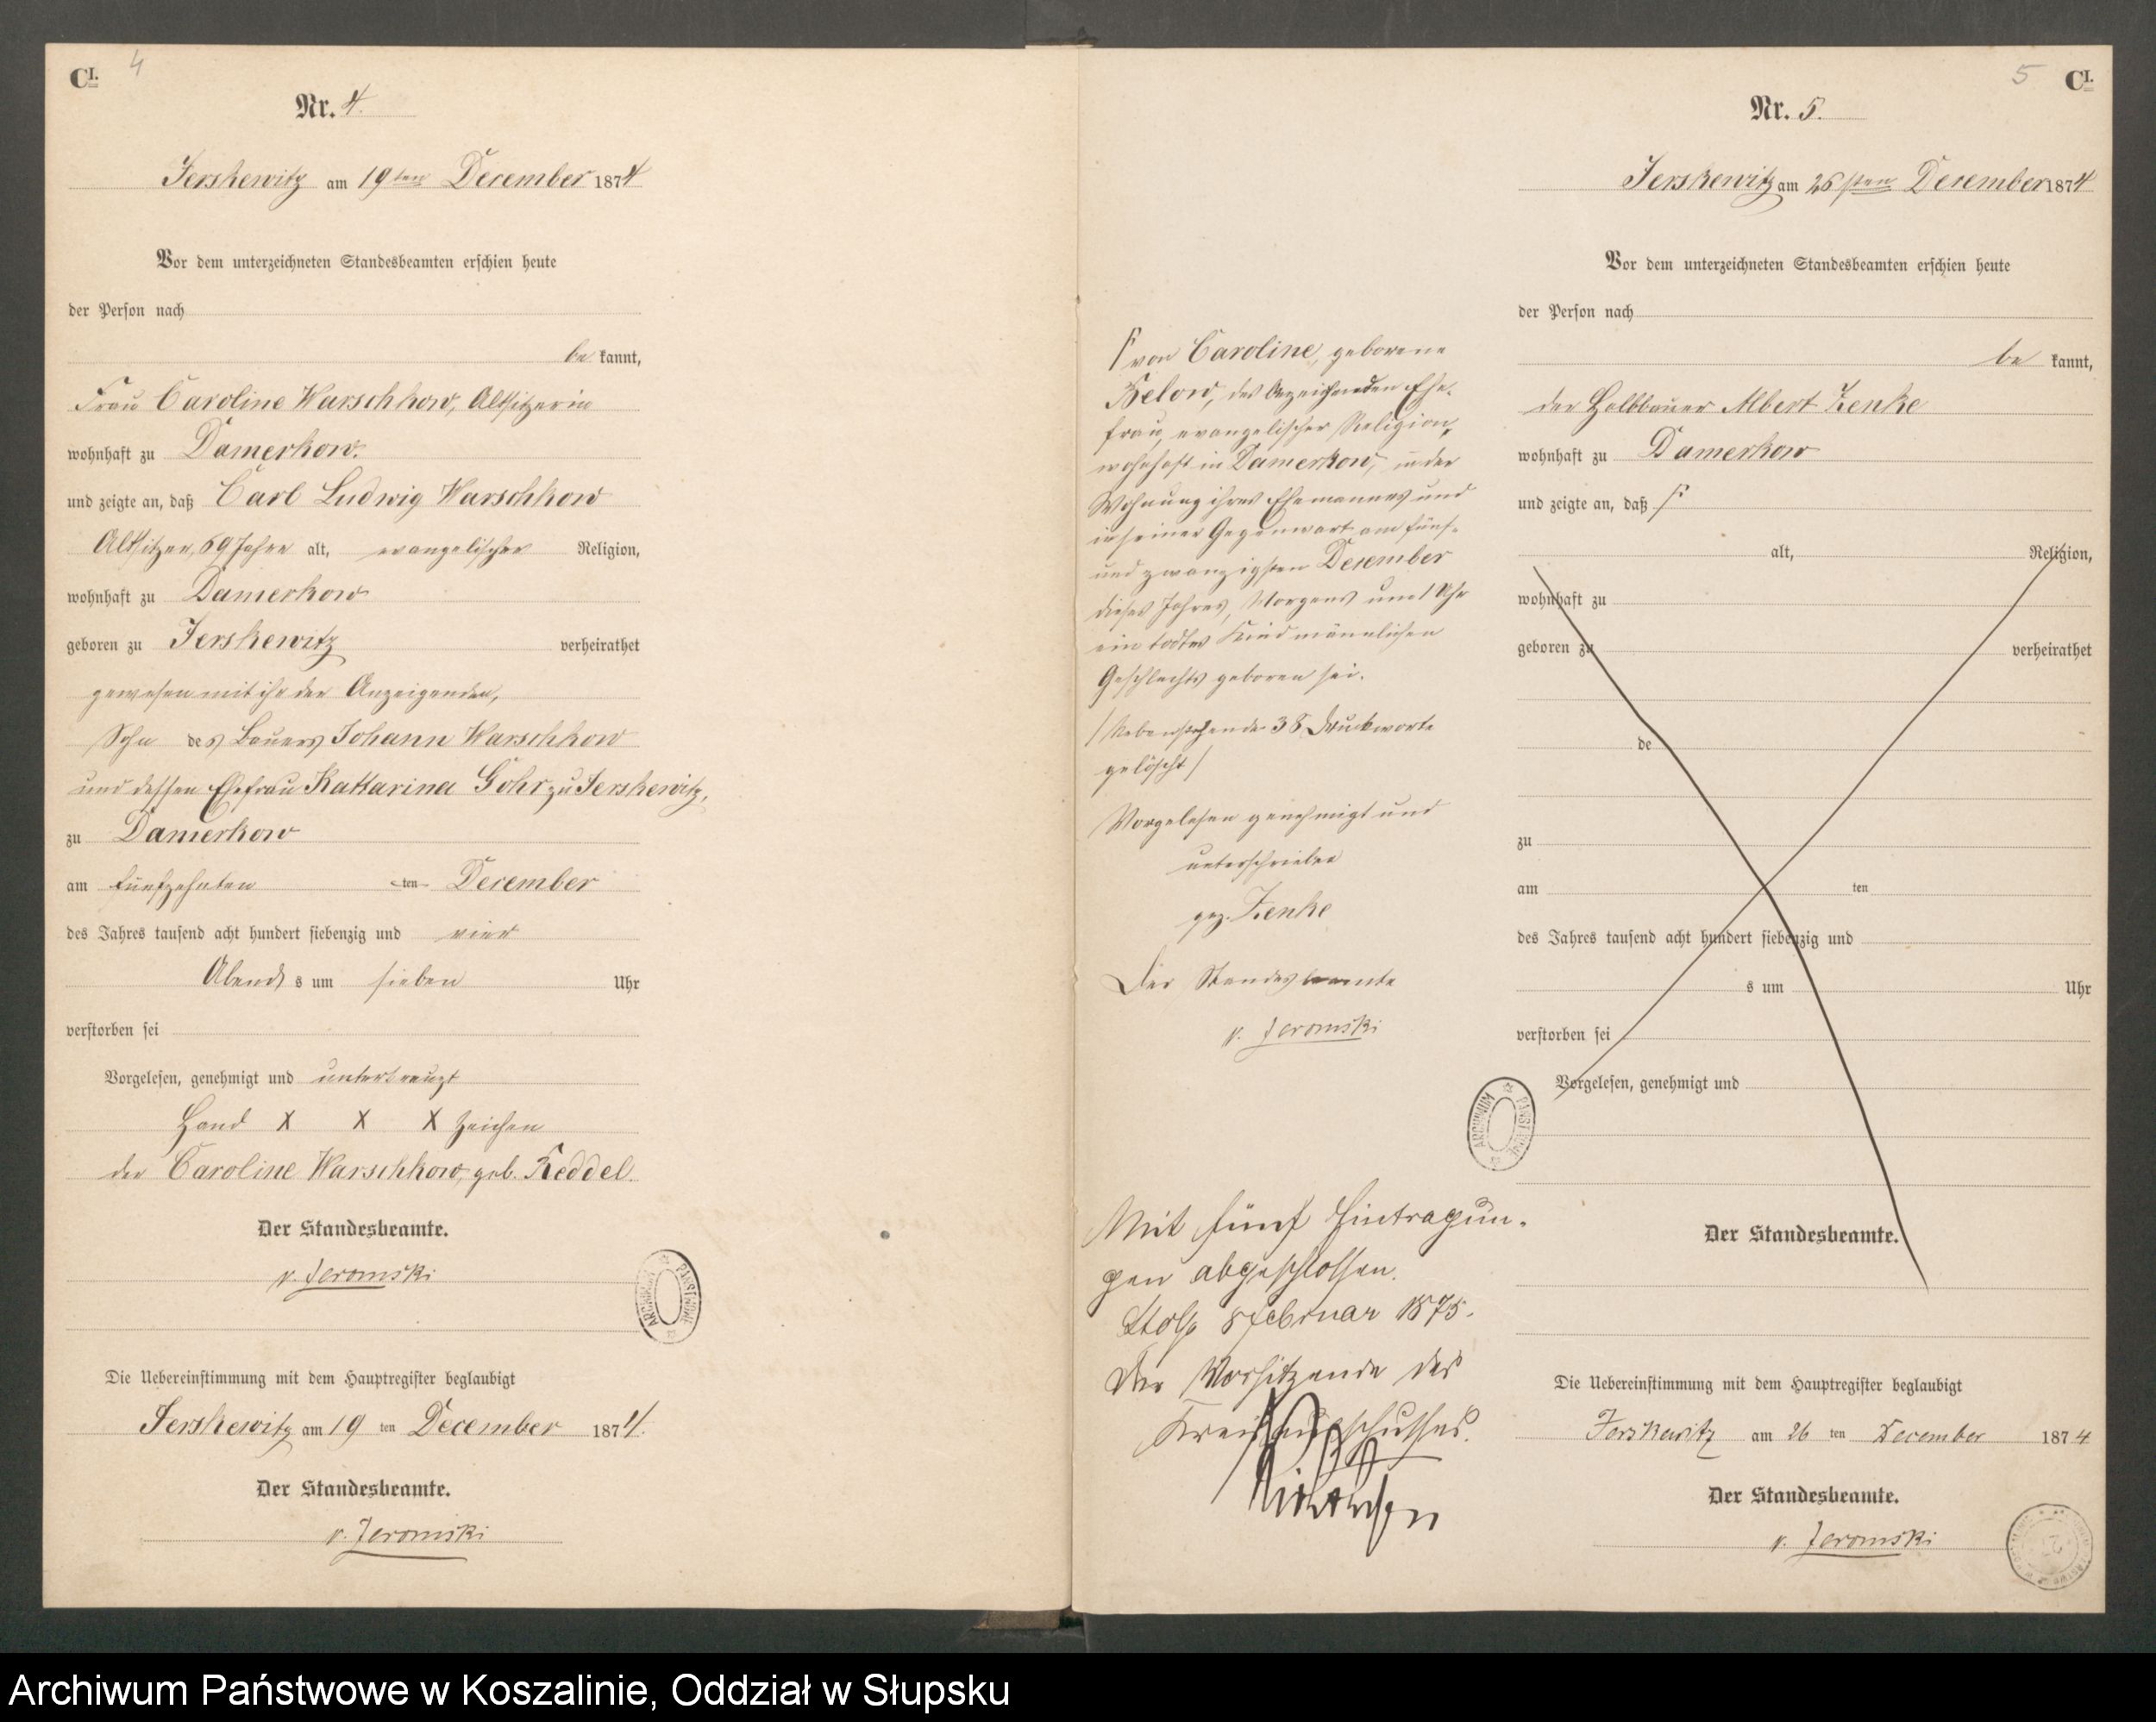 CI. 4
Nr. 4.
Jerskewitz am 19ten December 1874
Vor dem unterzeichneten Standesbeamten erschien heute
der Person nach
be kannt,
Frau Caroline Warschkow, Altsitzerin
wohnhaft zu Damerkow.
und zeigte an, daß Carl Ludwig Warschkow
Altsitzer, 69 Jahre alt, evangelischer Religion,
wohnhaft zu Damerkow
geboren zu Jerskewitz verheirathet
gewesen mit ihr der Anzeigenden,
Sohn des Bauers Johann Warschkow
und dessen Ehefrau Kattarina Gohr zu Jerskewitz,
zu Damerkow
am fünfzehnten ten December
des Jahres tausend acht hundert siebenzig und vier
Abends um sieben Uhr
verstorben sei
Vorgelesen, genehmigt und unterkreuzt
Hand X X X Zeichen
der Caroline Warschkow, geb. Keddel.
Der Standesbeamte.
v. Jeromski
ARCHIWUM PAŃSTWOWE
Die Uebereinstimmung mit dem Hauptregister beglaubigt
Jerskewitz am 19 ten December 1874.
Der Standesbeamte.
v. Jeromski
von Caroline, geborene
Below, des Anzeigenden Ehe-
frau, evangelischer Religion,
wohnhaft in Damerkow, in der
Wohnung ihres Ehemannes und
in seiner Gegenwart am fünf-
und zwanzigsten December
dieses Jahres, Morgens um 1 Uhr
ein todtes Kind männlichen
Geschlechts geboren sei.
/Nebenstehende 38 Druckworte
gelöscht/
Vorgelesen genehmigt und
unterschrieben
gez. Zenke
Der Standesbeamte
v. Jeromski
ARCHIWUM PAŃSTWOWE
Mit fünf Eintragun-
gen abgeschlossen.
Stolp 8 Februar 1875.
Der Vorsitzende des
Kreisausschusses.
5 CI.
Nr. 5.
Jerskewitz am 26sten December 1874
Vor dem unterzeichneten Standesbeamten erschien heute
der Person nach
be kannt,
der Halbbauer Albert Zenke
wohnhaft zu Damerkow
und zeigte an, daß
alt, Religion,
wohnhaft zu
geboren zu verheirathet
de
zu
am ten
des Jahres tausend acht hundert siebenzig und
s um Uhr
verstorben sei
Vorgelesen, genehmigt und
Der Standesbeamte.
Die Uebereinstimmung mit dem Hauptregister beglaubigt
Jerskewitz am 26 ten December 1874
Der Standesbeamte.
v. Jeromski
Archiwum Państwowe w Koszalinie, Oddział w Słupsku